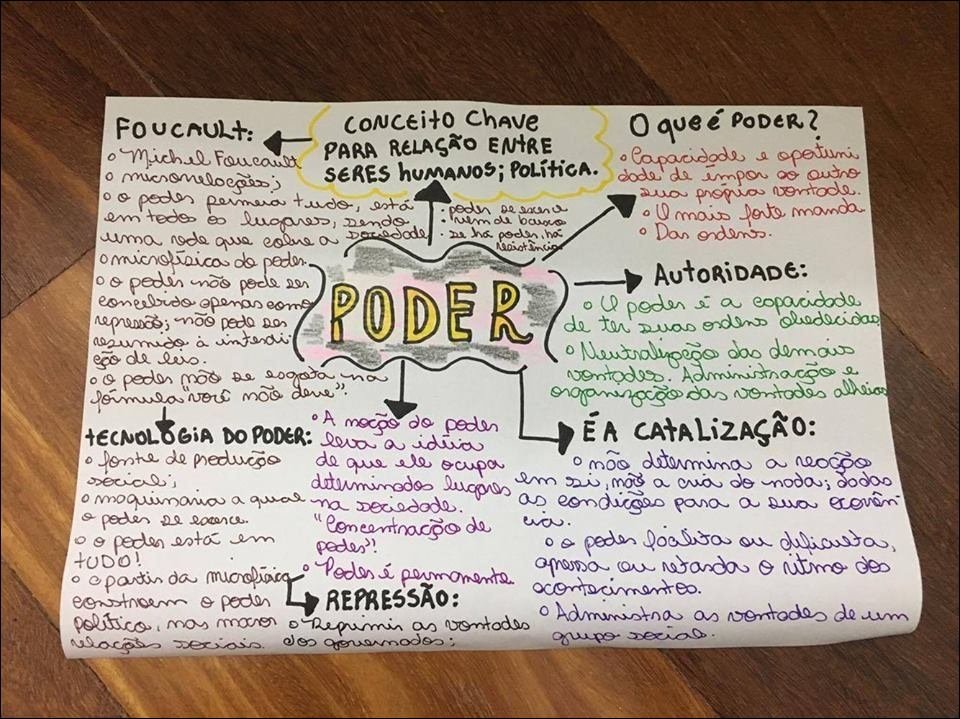 FOUCAULT:
o Michel Foucault
o microrelações;
o o poder permeia tudo, está
em todos os lugares, sendo
uma rede que cobre a sociedade
o microfísica do poder.
o o poder não pode ser
concebido apenas como
repressão; não pode ser
resumido à interdi
ção de leis.
o o poder não se esgota na
fórmula "você não deve".
TECNOLOGIA DO PODER:
o fonte de produção
social;
o maquinaria a qual
o poder se exerce.
o o poder está em
TUDO!
o a partir da microfísica
constroem o poder
político, nas macro
relações sociais.
CONCEITO CHAVE
PARA RELAÇÃO ENTRE
SERES HUMANOS; POLÍTICA.
• poder se exerce
• vem de baixo
• se há poder, há
resistência
PODER
o A noção do poder
leva a idéia
de que ele ocupa
determinados lugares
na sociedade.
"Concentração de
poder"!
o Poder é permanente
REPRESSÃO:
o Reprimir as vontades
dos governados;
O QUE É PODER?
o Capacidade e oportuni
dade de impor ao outro
sua própria vontade.
o O mais forte manda
o Das ordens.
AUTORIDADE:
o O poder é a capacidade
de ter suas ordens obedecidas
o Neutralização das demais
vontades. Administração e
organização das vontades alheias
É A CATALIZAÇÃO:
o não determina a reação
em si, não a cria do nada; dadas
as condições para a sua ocorrên
cia.
o o poder facilita ou dificulta,
apressa ou retarda o ritmo dos
acontecimentos.
o Administra as vontades de um
grupo social.